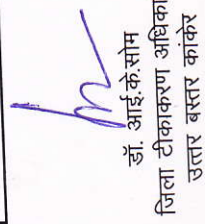 डॉ. आई.के.सोम
जिला टीकाकरण अधिका
उत्तर बस्तर कांकेर